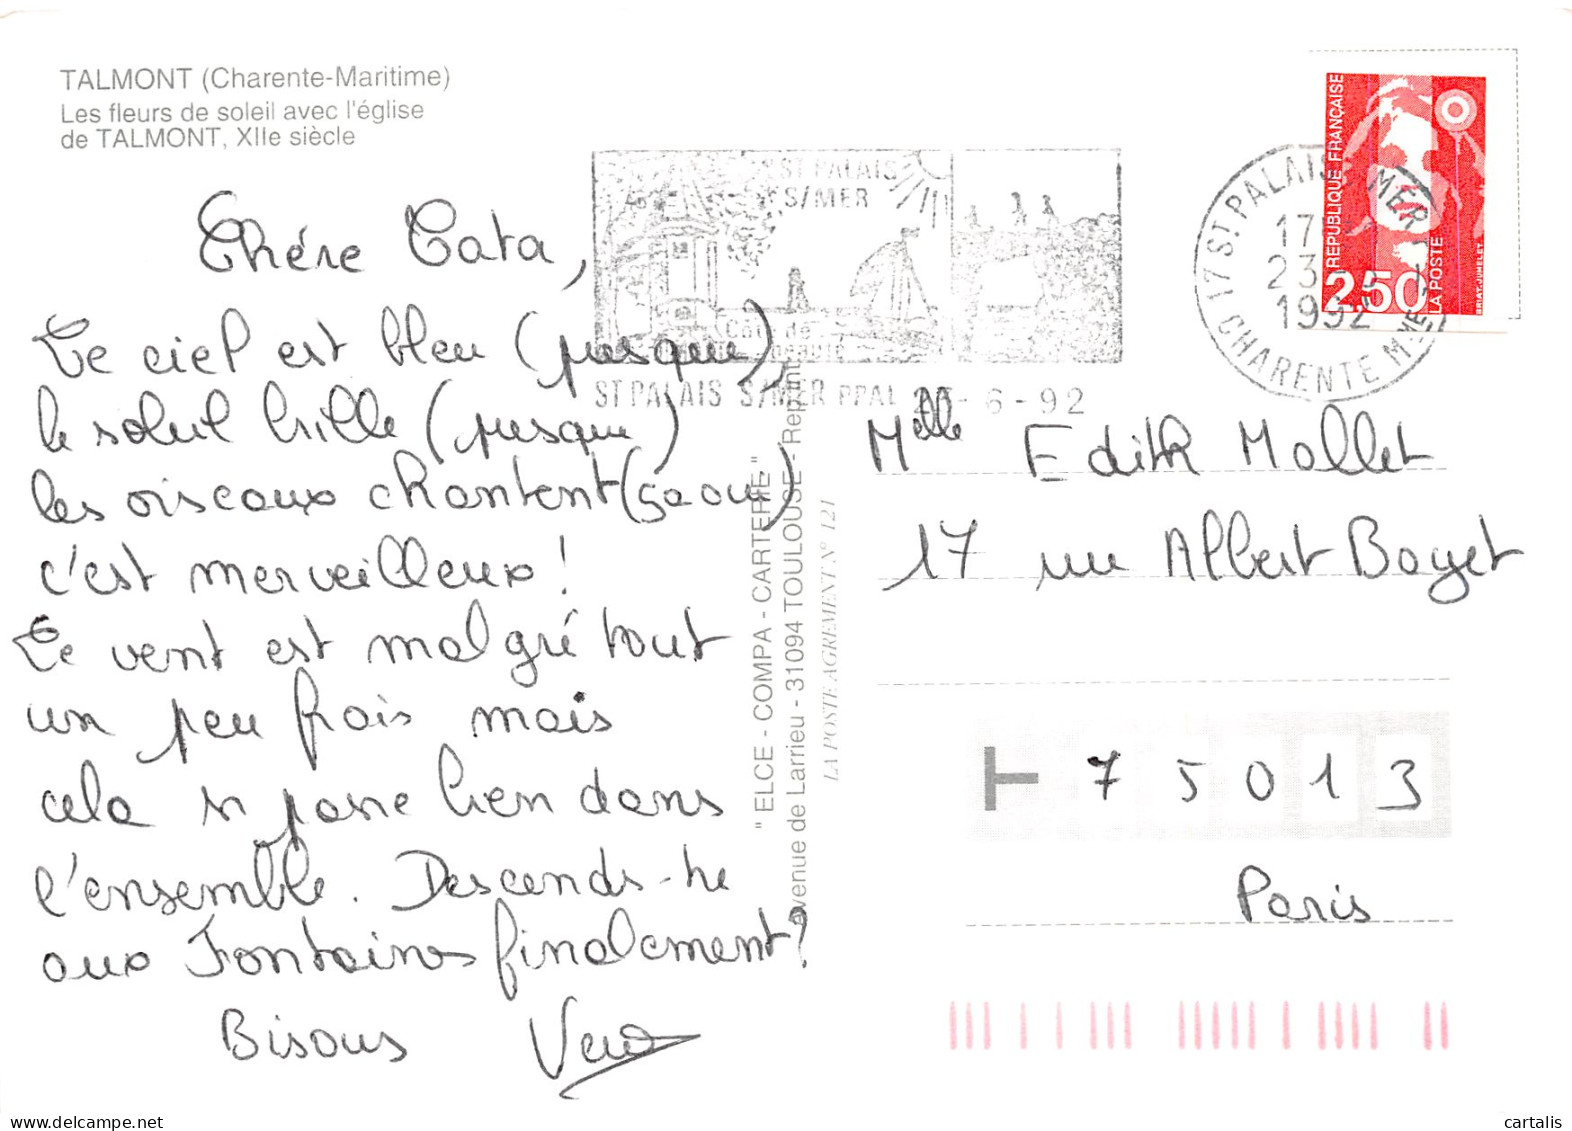 TALMONT (Charente-Maritime)
Les fleurs de soleil avec l'église
de TALMONT, XIIe siècle
Chére Tata,
Le ciel est bleu (presque),
le soleil brille (presque)
les oiseaux chantent (ça oui)
c'est merveilleux!
Le vent est malgré tout
un peu frais mais
cela se passe bien dans
l'ensemble. Descends-tu
aux Fontaines finalement?
Bisous Vero
ST PALAIS
S/MER
Côte de
beauté
ST PALAIS S/MER PPAL 23-6-92
17 ST PALAIS S/MER
17
23
1992
CHARENTE MME
REPUBLIQUE FRANÇAISE
2,50
LA POSTE
BRIAT-JUMELET
" ELCE - COMPA - CARTERIE "
avenue de Larrieu - 31094 TOULOUSE - Rep
LA POSTE AGREMENT N° 121
Melle Edith Mollet
17 rue Albert Bayet
75013
Paris
delcampe.net
cartalis